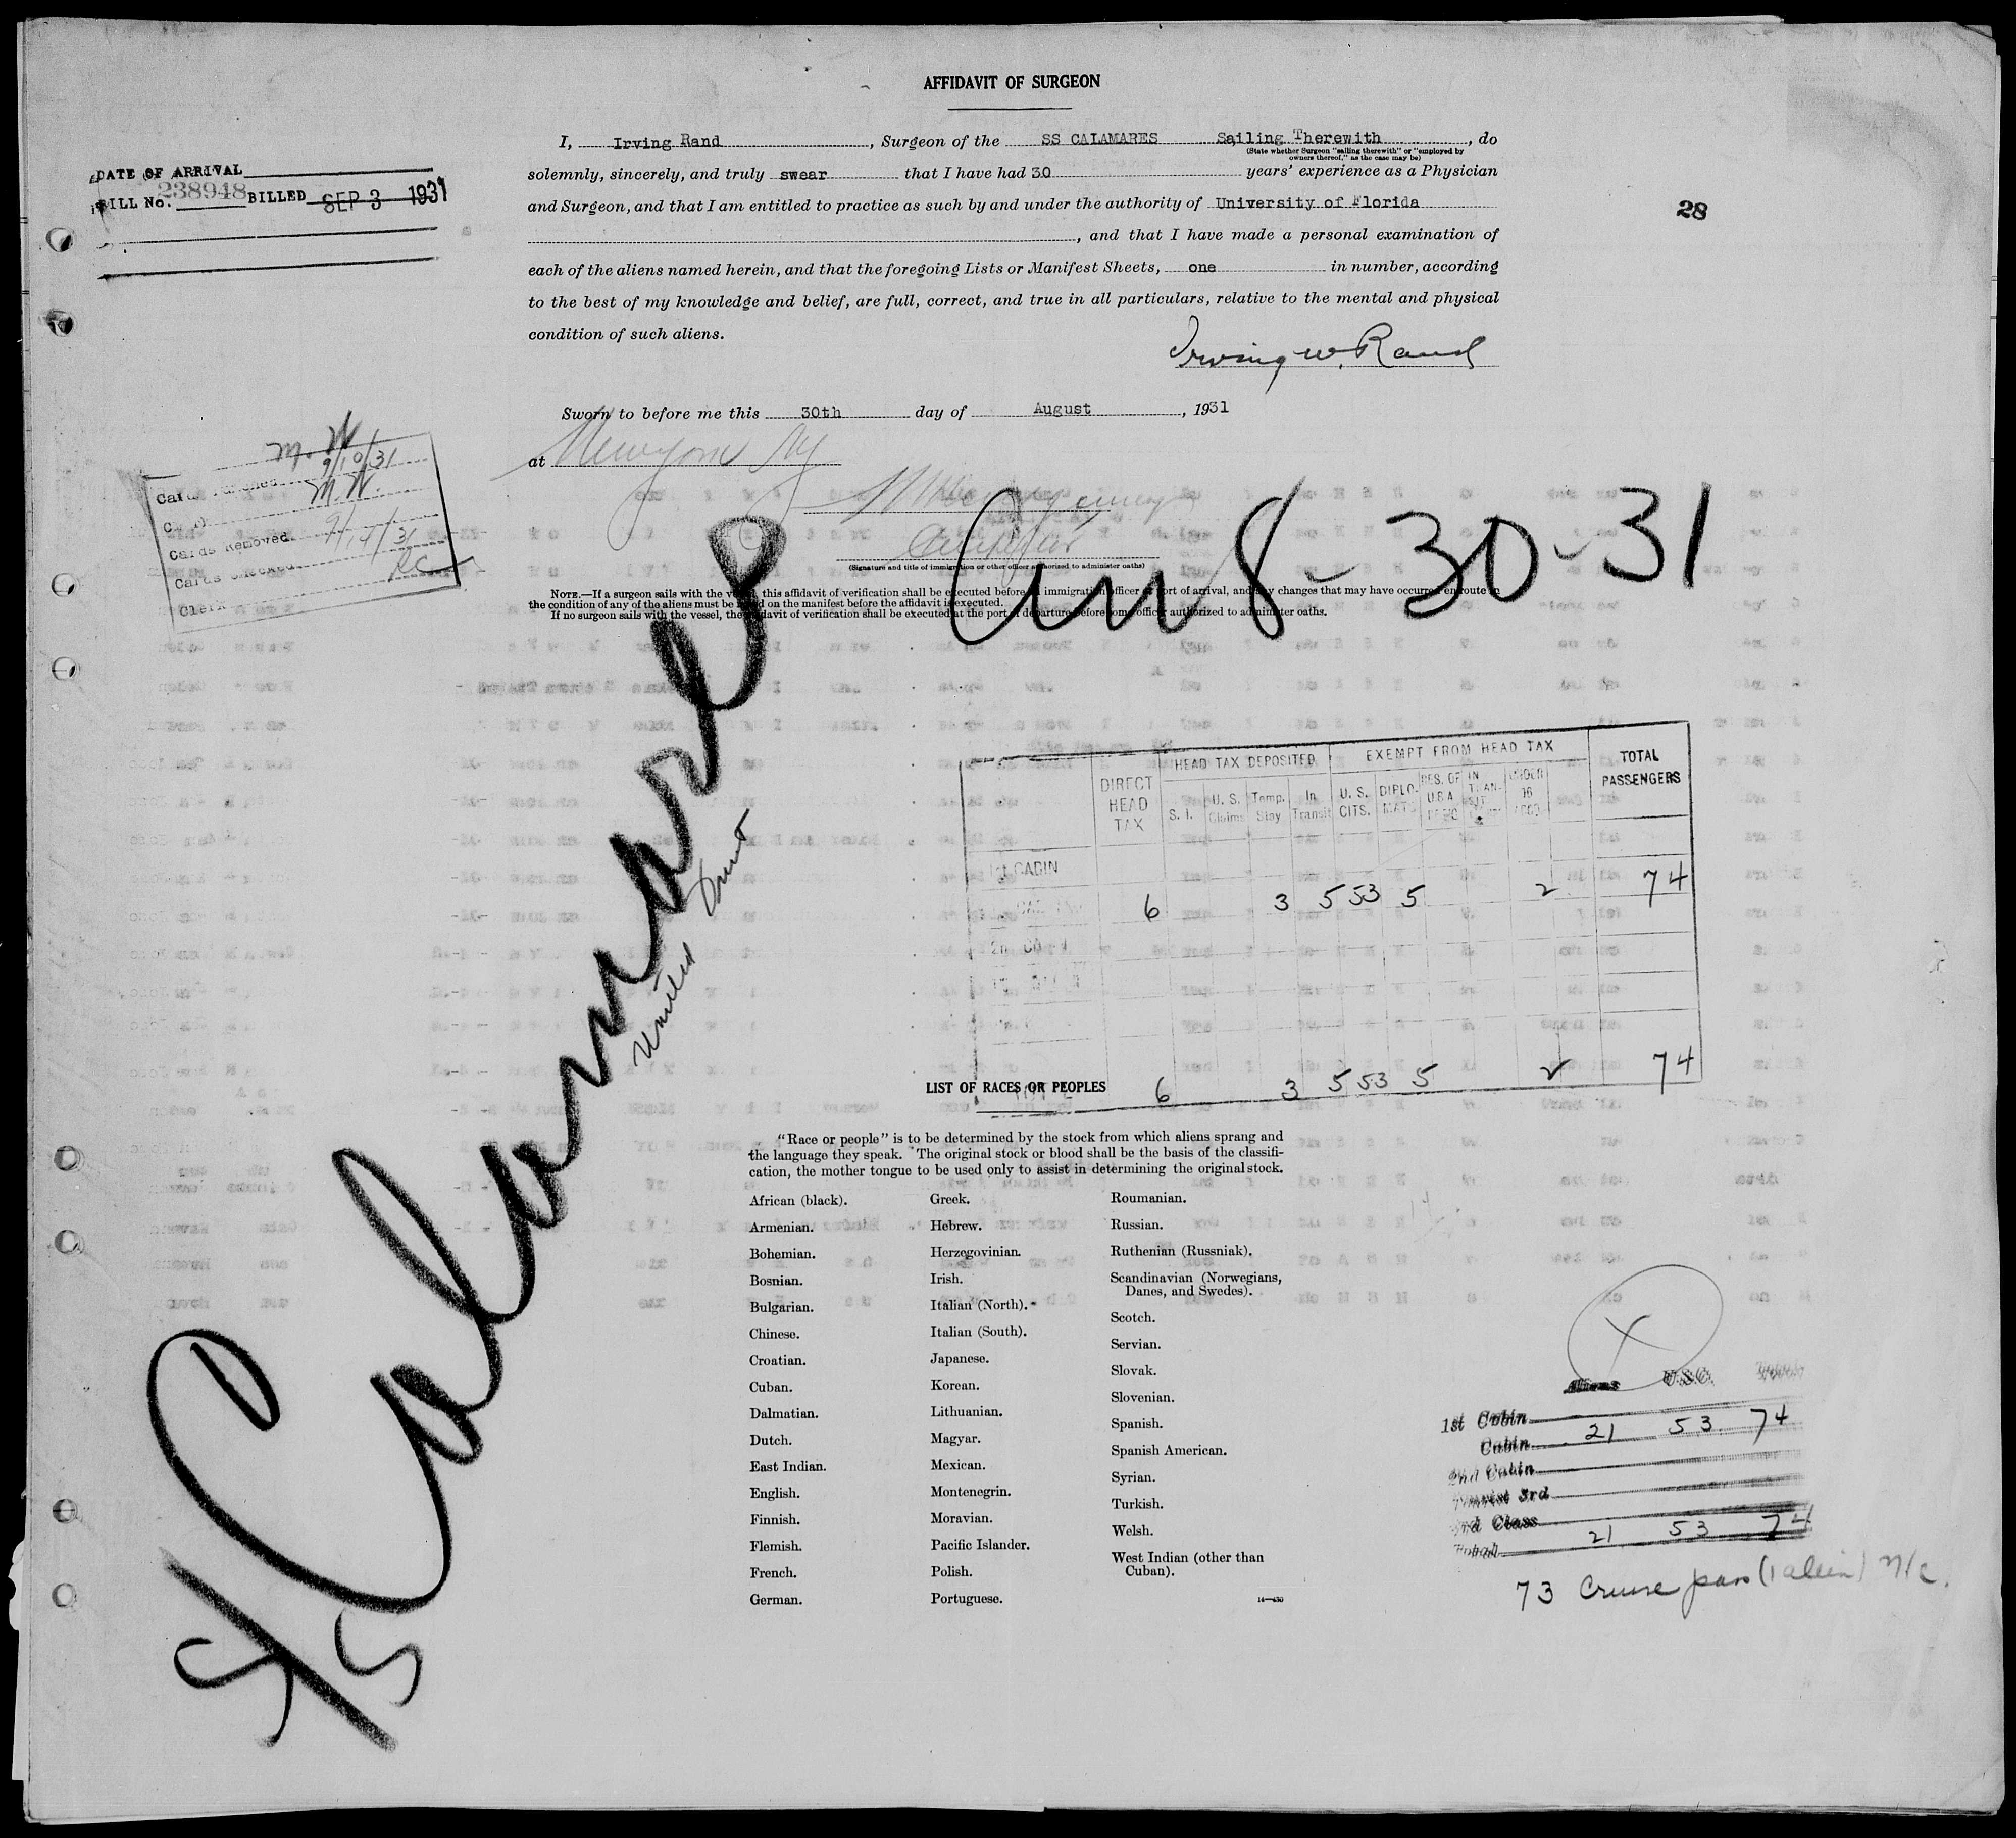 AFFIDAVIT OF SURGEON
I, Irving Rand, Surgeon of the SS CALAMARES Sailing Therewith, do
(State whether Surgeon "sailing therewith" or "employed by
owners thereof," as the case may be)
solemnly, sincerely, and truly swear that I have had 30 years' experience as a Physician
and Surgeon, and that I am entitled to practice as such by and under the authority of University of Florida
, and that I have made a personal examination of
each of the aliens named herein, and that the foregoing Lists or Manifest Sheets, one in number, according
to the best of my knowledge and belief, are full, correct, and true in all particulars, relative to the mental and physical
condition of such aliens.
Irving W. Rand
Sworn to before me this 30th day of August, 1931
at New York NY
(Signature and title of immigration or other officer authorized to administer oaths)
NOTE.—If a surgeon sails with the vessel, this affidavit of verification shall be executed before an immigration officer at port of arrival, and any changes that may have occurred en route in
the condition of any of the aliens must be noted on the manifest before the affidavit is executed.
If no surgeon sails with the vessel, the affidavit of verification shall be executed at the port of departure before some officer authorized to administer oaths.
DATE OF ARRIVAL
BILL No. 238948 BILLED SEP 3 1931
28
M. W.
9/10/31
M. W.
Cards Removed 9/14/31
Cards Checked RC
Clerk
Arr 8-30-31
S/S Calamares
United Fruit
DIRECT HEAD TAX
HEAD TAX DEPOSITED
S. I.
U. S. Claims
Temp. Stay
In Transit
EXEMPT FROM HEAD TAX
U. S. CITS.
DIPLO-MATS
RES. OF U.S.A.
IN TRAN-SIT
UNDER 16
TOTAL PASSENGERS
1st CABIN
6 3 5 53 5 2 74
6 3 5 53 5 2 74
LIST OF RACES OR PEOPLES
"Race or people" is to be determined by the stock from which aliens sprang and
the language they speak. The original stock or blood shall be the basis of the classifi-
cation, the mother tongue to be used only to assist in determining the original stock.
African (black).
Armenian.
Bohemian.
Bosnian.
Bulgarian.
Chinese.
Croatian.
Cuban.
Dalmatian.
Dutch.
East Indian.
English.
Finnish.
Flemish.
French.
German.
Greek.
Hebrew.
Herzegovinian.
Irish.
Italian (North).
Italian (South).
Japanese.
Korean.
Lithuanian.
Magyar.
Mexican.
Montenegrin.
Moravian.
Pacific Islander.
Polish.
Portuguese.
Roumanian.
Russian.
Ruthenian (Russniak).
Scandinavian (Norwegians,
Danes, and Swedes).
Scotch.
Servian.
Slovak.
Slovenian.
Spanish.
Spanish American.
Syrian.
Turkish.
Welsh.
West Indian (other than
Cuban).
14—430
X
Aliens USC Total
1st Cabin
Cabin 21 53 74
2nd Cabin
Tourist 3rd
3rd Class
Total 21 53 74
73 Cruise pass (1 alien) N/C.